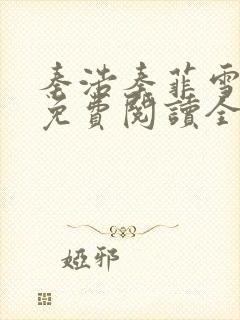 秦浩秦菲雪
免費閱讀全
婭邪